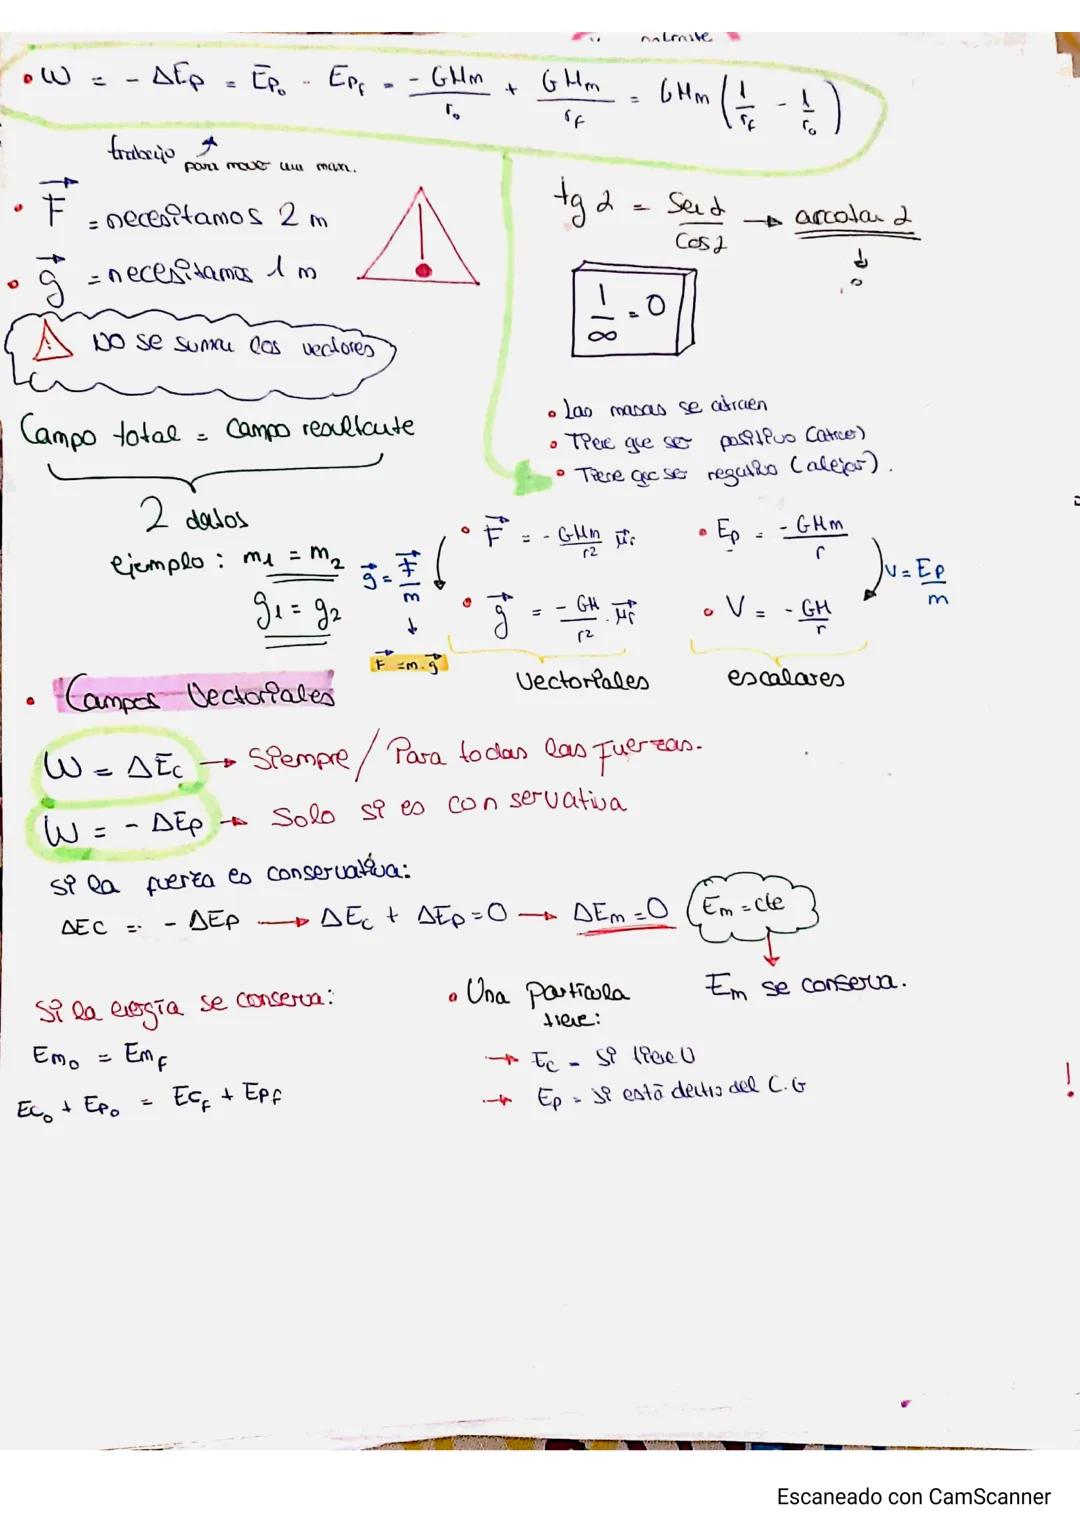 • W = - ΔEp = Ep₀ - Epf = - GMm/r₀ + GMm/rf = GMm (1/rf - 1/r₀)
trabajo para mover una masa.
• F⃗ = necesitamos 2 m
• g⃗ = necesitamos 1 m
⚠ NO se suman los vectores
tg α = Sen α / Cos α → arcotan α
1/∞ = 0
Campo total = Campo resultante
2 datos
ejemplo: m₁ = m₂
g₁ = g₂
• Las masas se atraen
• Tiene que ser positivo (atraer)
• Tiene que ser negativo (alejar).
g⃗ = F⃗/m
↓
F⃗ = m · g⃗
• F⃗ = - GMm/r² μ⃗r
• g⃗ = - GM/r² · μ⃗r
Vectoriales
• Ep = - GMm/r
• V = - GM/r
V = Ep/m
escalares
• Campos Vectoriales
W = ΔEc → Siempre / Para todas las fuerzas.
W = - ΔEp → Solo si es conservativa
Si la fuerza es conservativa:
ΔEC = - ΔEp → ΔEc + ΔEp = 0 → ΔEm = 0 Em = cte
Em se conserva.
Si la energía se conserva:
Em₀ = Emf
Ec₀ + Ep₀ = Ecf + Epf
• Una partícula tiene:
→ Ec - si tiene v
→ Ep = si está dentro del C.G
!
Escaneado con CamScanner